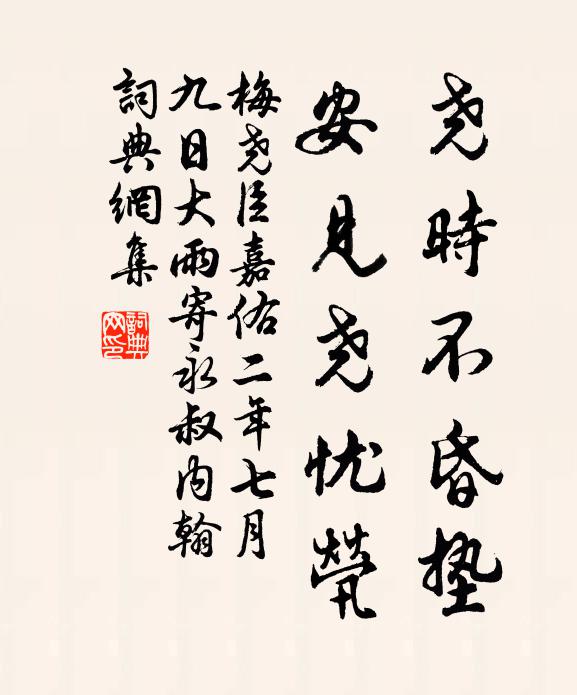 尧時不昏墊
安見尧忧㷀
梅尧臣嘉佑二年七月
九日大雨寄永叔内翰
詞典網集
詞典
网印